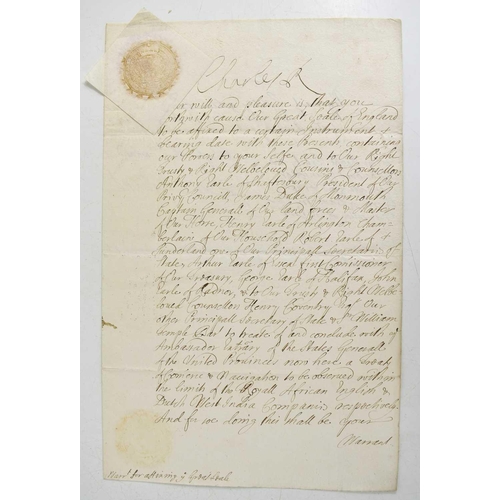 Charles R
Our will and pleasure is that you
forthwith cause Our Great Seale of England
to be affixed to a certain Instrument
bearing date with these Present containing
our Powers to your Selfe, and to Our Right
Trusty & Right Welbeloved Cousins & Councellors
Anthony Earle of Shaftesbury President of Our
Privy Councill, James Duke of Monmouth
Captain Generall of Our land forces & Master
of Our Horse, Henry Earle of Arlington Cham-
berlain of Our Household Robert Earle of
Sunderland one of Our Principall Secretarys of
State, Arthur Earle of Essex first Comissioner
of Our Treasury, George Earle of Halifax, John
Earle of Radnor, & to Our Trusty & Right Welbe
loved Councellors Henry Coventry Our
other Principall Secretary of State & Sr William
Temple Bart to treate of and conclude with ye
Ambassador of the States Generall
of the United Provinces now here a Treaty
of Comerce & Navigation to be observed within
the limits of the Royall African English &
Dutch West India Companies respectively.
And for so doing this shall be your
Warrant
Warrt for affixing ye Great Seale